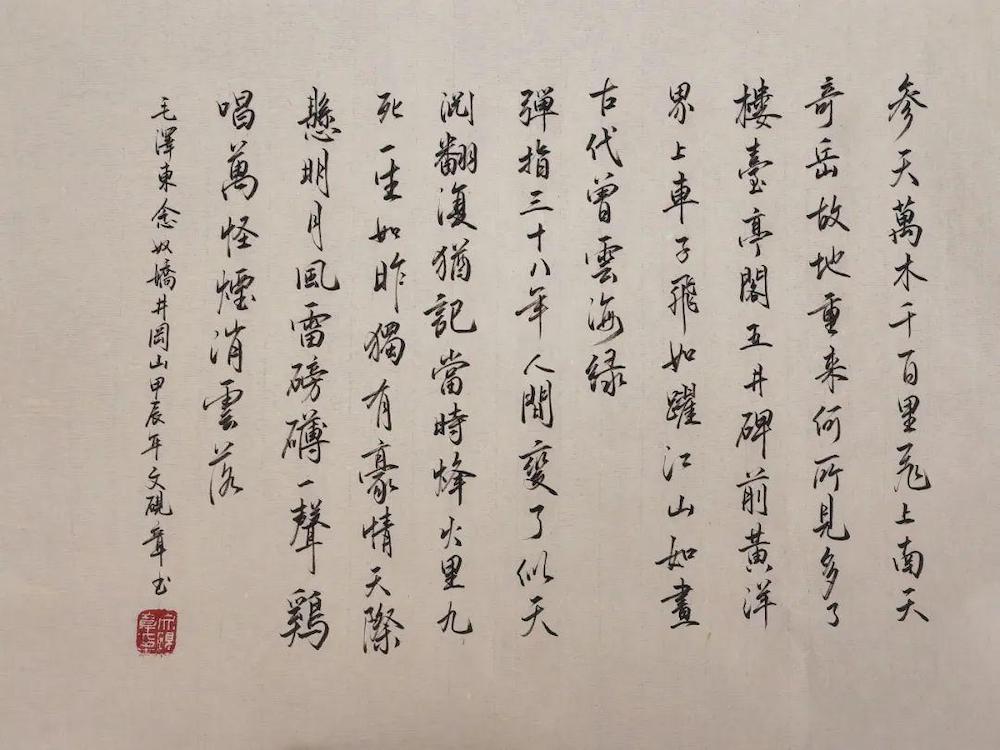 參天萬木千百里飛上南天
奇岳故地重来何所見多了
樓臺亭閣五井碑前黃洋
界上車子飛如躍江山如畫
古代曾雲海绿
彈指三十八年人間變了似天
淵翻復猶記當時烽火里九
死一生如昨獨有豪情天際
懸明月風雷磅礴一聲鷄
唱萬怪煙消雲落
毛澤東念奴嬌井岡山甲辰年文硯章书